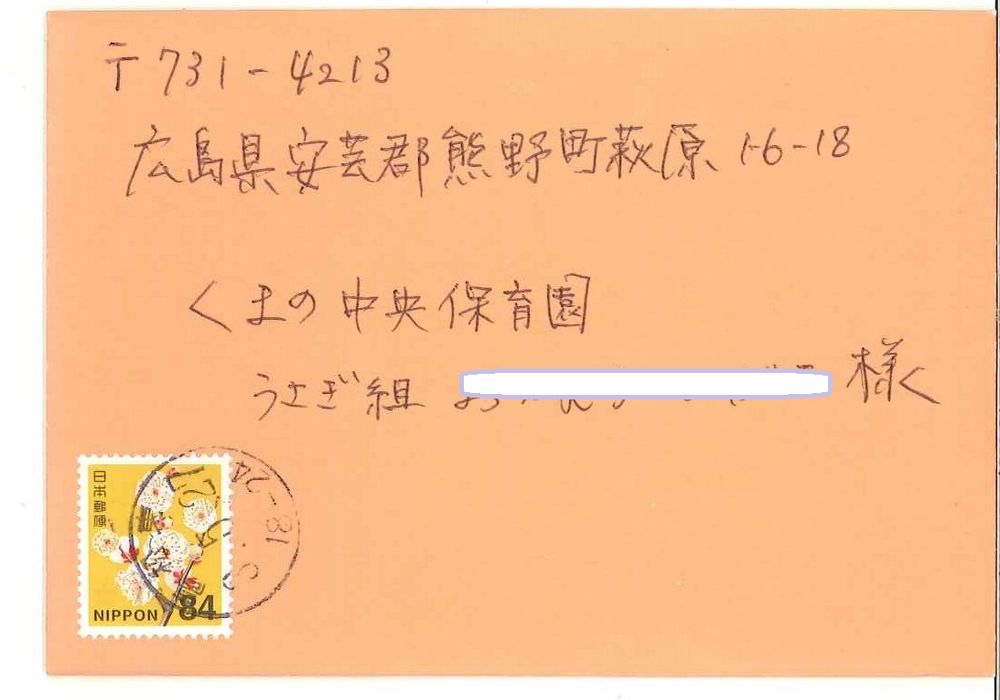 〒731-4213
広島県安芸郡熊野町萩原 1-6-18
くまの中央保育園
うさぎ組 様
日本郵便
NIPPON 84
18-24